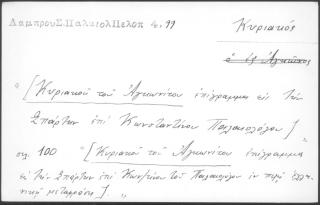 Λαμπρου Σ. Παλαιολ Πελοπ 4,99
Κυριακός
ὁ ἐξ Ἀγκῶνος
"[Κυριακοῦ τοῦ Ἀγκωνίτου ἐπίγραμμα εἰς τὴν
Σπάρτην ἐπὶ Κωνσταντίνου Παλαιολόγου]
σελ. 100 "[Κυριακοῦ τοῦ Ἀγκωνίτου ἐπίγραμμα
εἰς τὴν Σπάρτην ἐπὶ Κων/τίνου τοῦ Παλαιολόγου ἐν πεζῇ ἑλλη
νικῇ μεταφράσει]. "